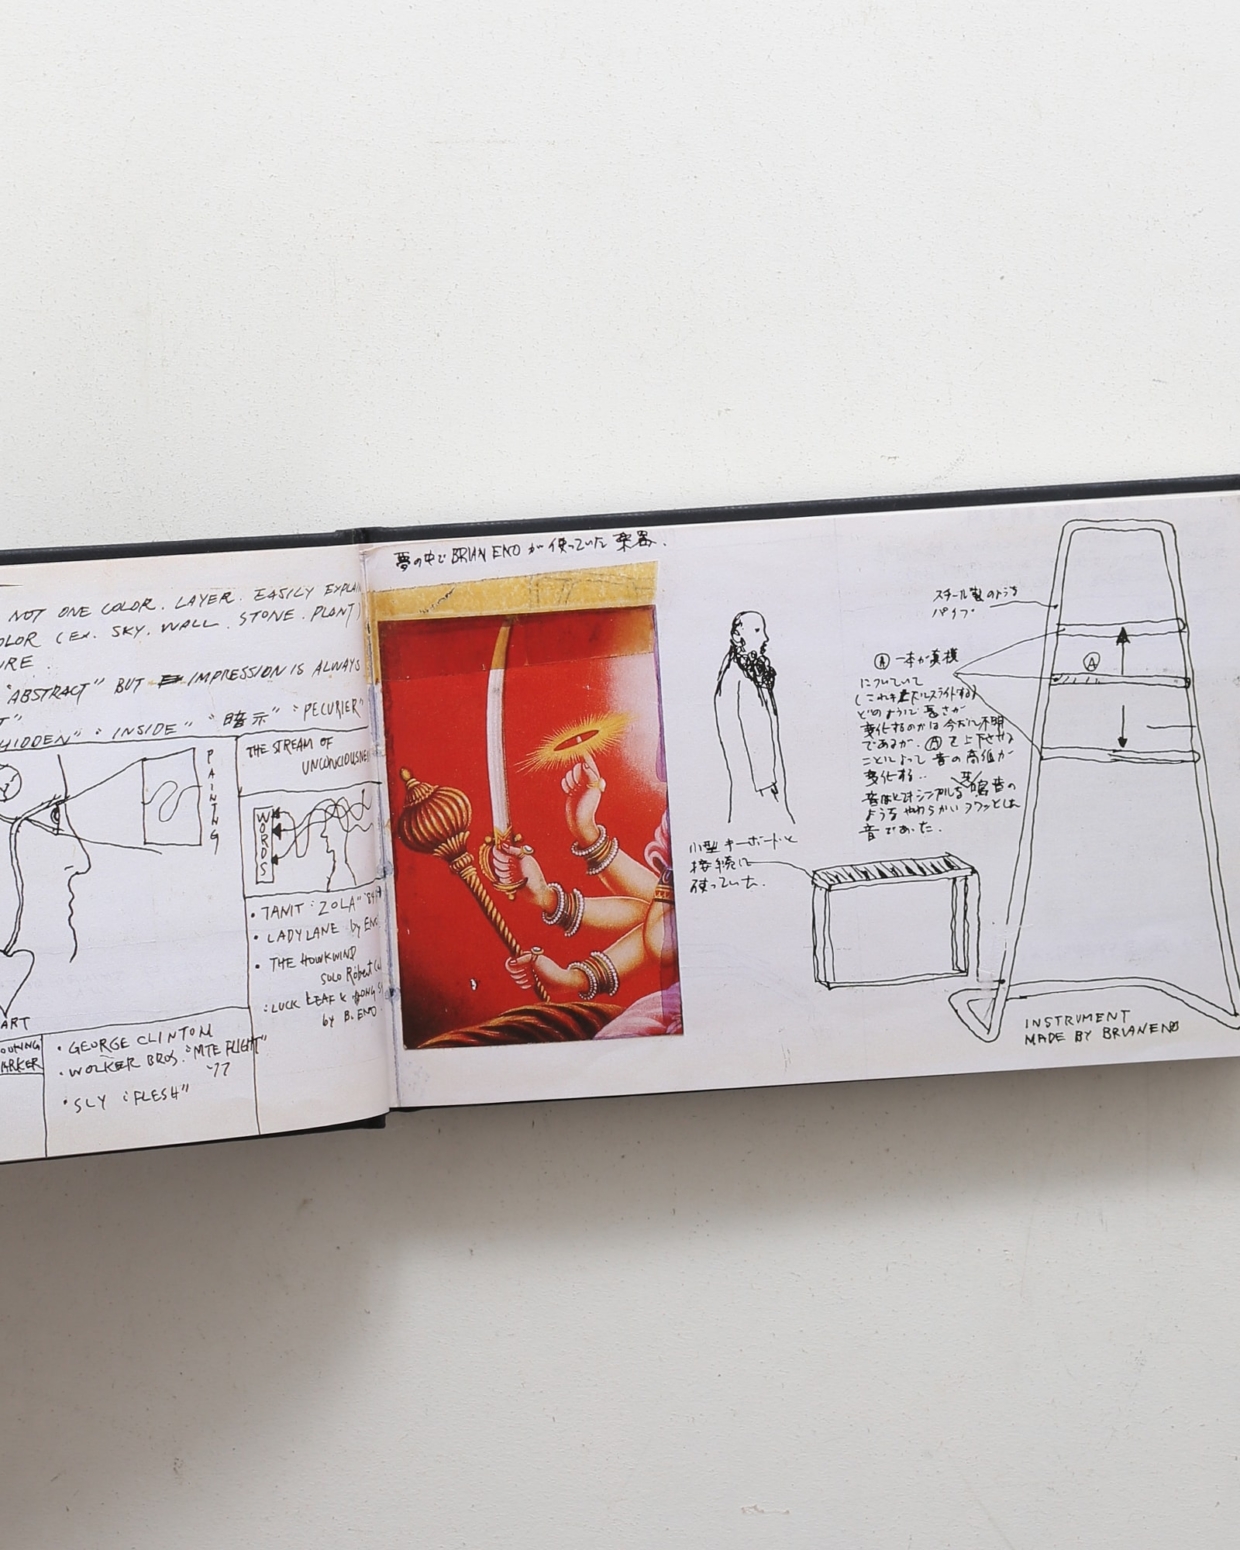 NOT ONE COLOR. LAYER. EASILY EXPLAI
OLOR (EX. SKY. WALL. STONE. PLANT)
URE.
"ABSTRACT" BUT IMPRESSION IS ALWAYS
T"
HIDDEN" "INSIDE" "暗示" "PECURIER"
PAINTING
THE STREAM OF
UNCONCIOUSNESS
WORDS
ART
• TANIT "ZOLA"
• LADY LANE by ENO
• THE HOWKWIND
SOLO Robert Cal
by B. ENO
ARKER
• GEORGE CLINTON
• WOLKER BROS. "NITE FLIGHT"
'77
• SLY "FLESH"
夢の中でBRIAN ENOが使っていた楽器.
スチール製のような
パイプ
Ⓐ 一本が真横
についていて
(これも上下にスライドする)
どのように長さが
変化するのかは今だに不明
であるが、Ⓐを上下させる
ことによって音の高低が
変化する..
音はとてもシンプルな
ようなやわらかいフワッとした
音であった.
Ⓐ
小型キーボードと
接続して
使っていた.
INSTRUMENT
MADE BY BRIAN ENO